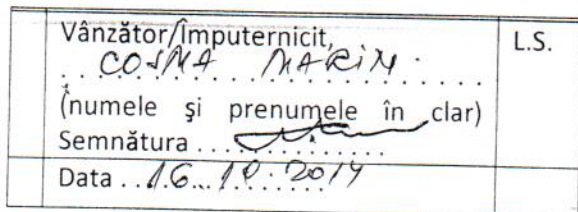 Vânzător/Împuternicit,
L.S.
COSMA MARIN
(numele și prenumele în clar)
Semnătura . . . . . . . . . . . . . .
Data . . 16 . . 10 . 2014